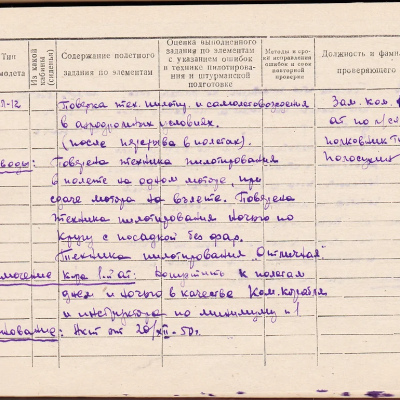 Тип
молета
Из какой
кабины
(сиденья)
Содержание полетного
задания по элементам
Оценка выполненного
задания по элементам
с указанием ошибок
в технике пилотирова-
ния и штурманской
подготовке
Методы и сро-
ки исправления
ошибок и срок
повторной
проверки
Должность и фамил
проверяющего
Л-12
Поверка тех. пилоту. и самолетовождения
в аэродромных условиях.
(после перерыва в полетах).
воды: Поверена техника пилотирования
в полете на одном моторе, при
сдаче мотора на взлете. Поверена
техника пилотирования ночью по
кругу с посадкой без фар.
Техника пилотирования „Отличная"
лючение Допустить к полетам
днем и ночью в качестве Ком. корабля
и инструктора по минимуму №1
нование: Акт от 20/XII-50г.
Зам. ком.
ат по л/с
полковник